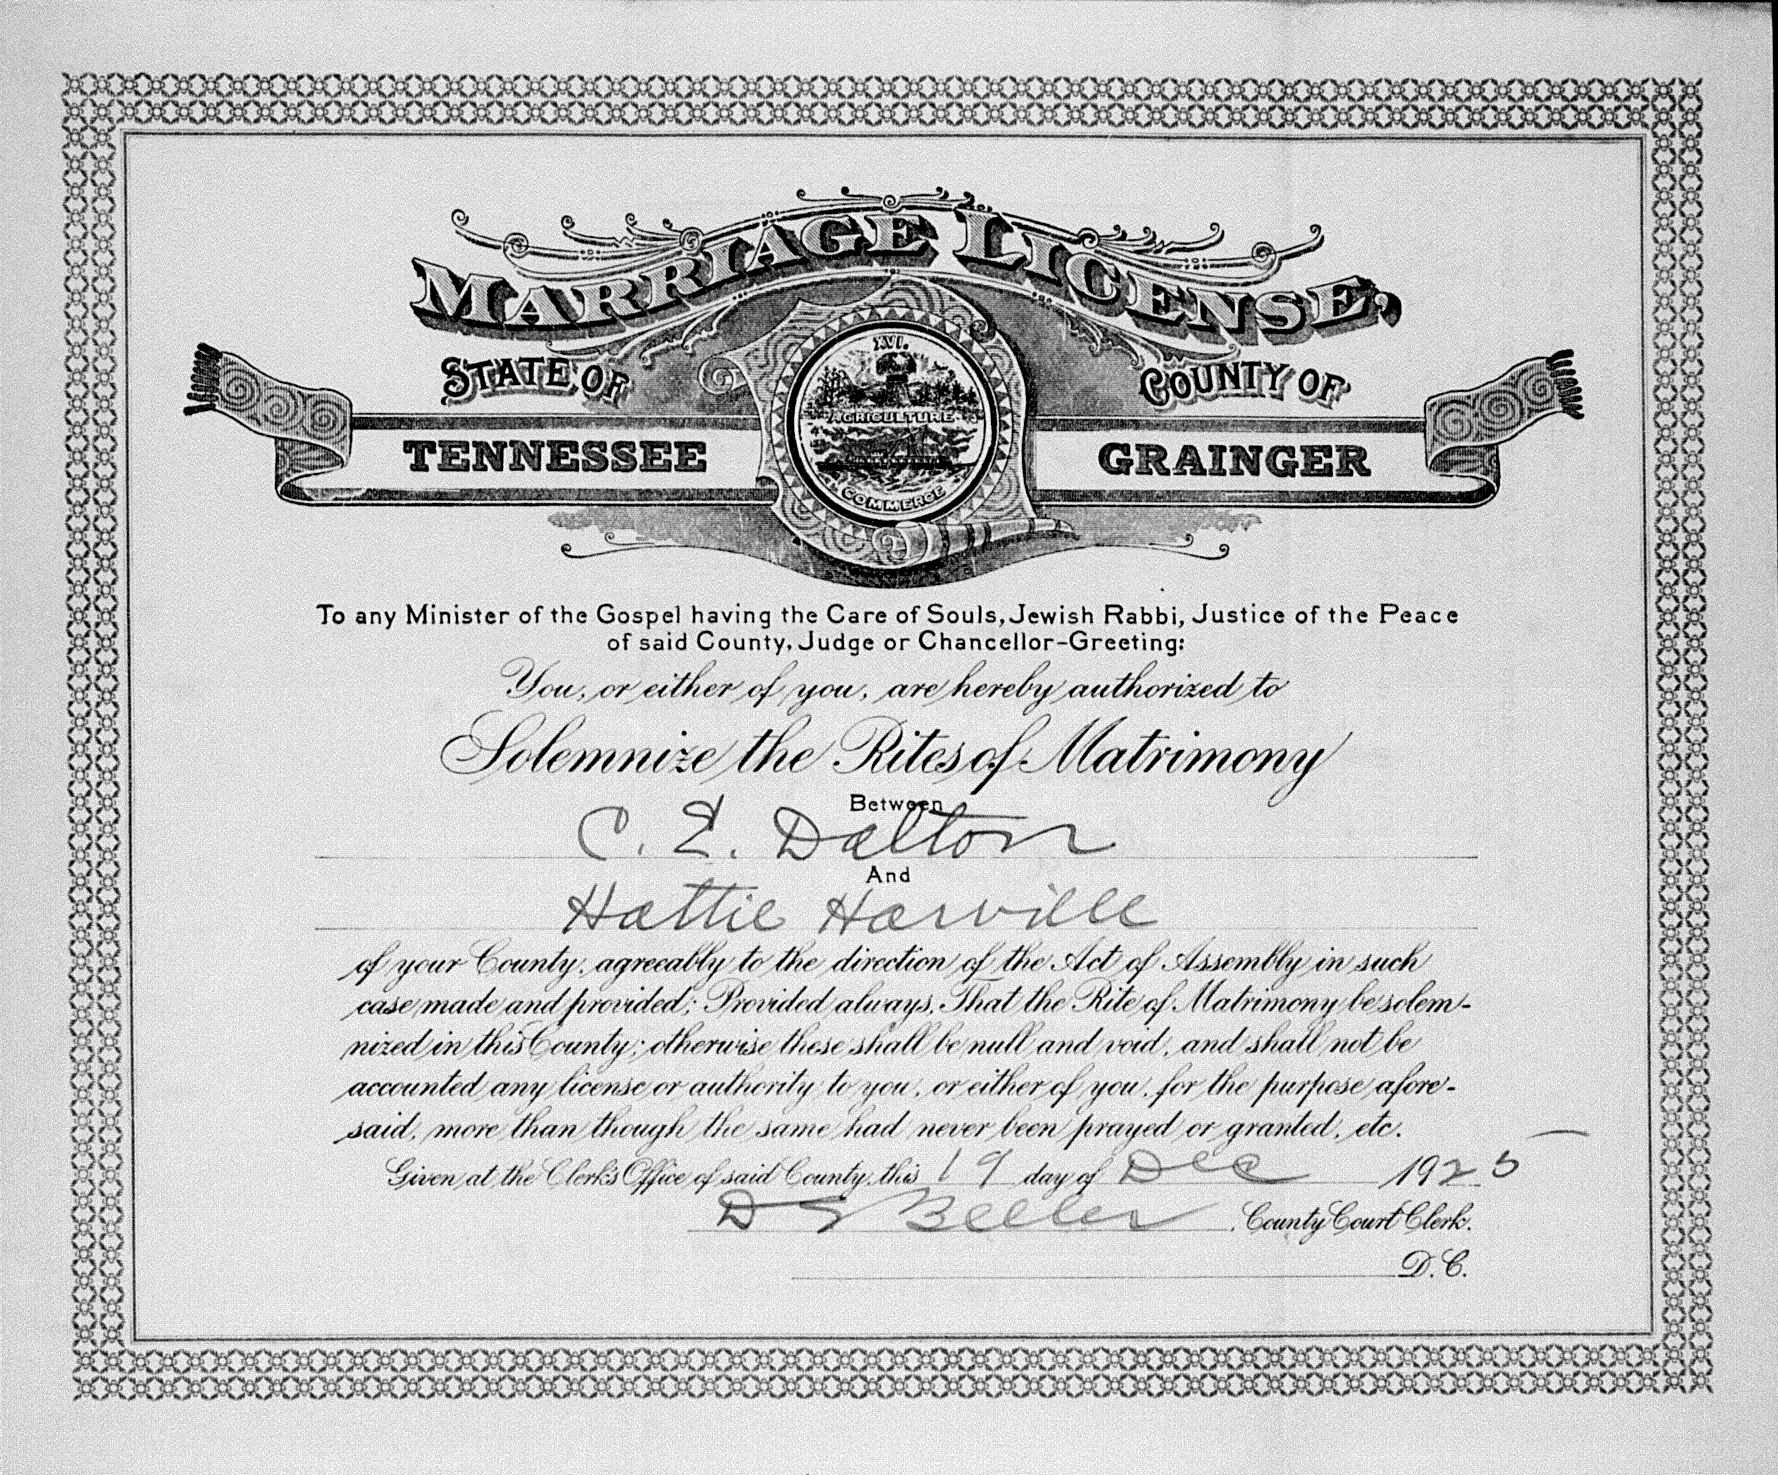 MARRIAGE LICENSE,
STATE OF
TENNESSEE
COUNTY OF
GRAINGER
XVI.
AGRICULTURE
COMMERCE
To any Minister of the Gospel having the Care of Souls, Jewish Rabbi, Justice of the Peace
of said County, Judge or Chancellor-Greeting:
You, or either of you, are hereby authorized to
Solemnize the Rites of Matrimony
Between
C. E. Dalton
And
Hattie Harville
of your County, agreeably to the direction of the Act of Assembly in such
case made and provided; Provided always, That the Rite of Matrimony be solem-
nized in this County; otherwise these shall be null and void, and shall not be
accounted any license or authority to you, or either of you, for the purpose afore-
said, more than though the same had never been prayed or granted, etc.
Given at the Clerk's Office of said County, this 19 day of Dec 1925
Beeler, County Court Clerk.
D. C.